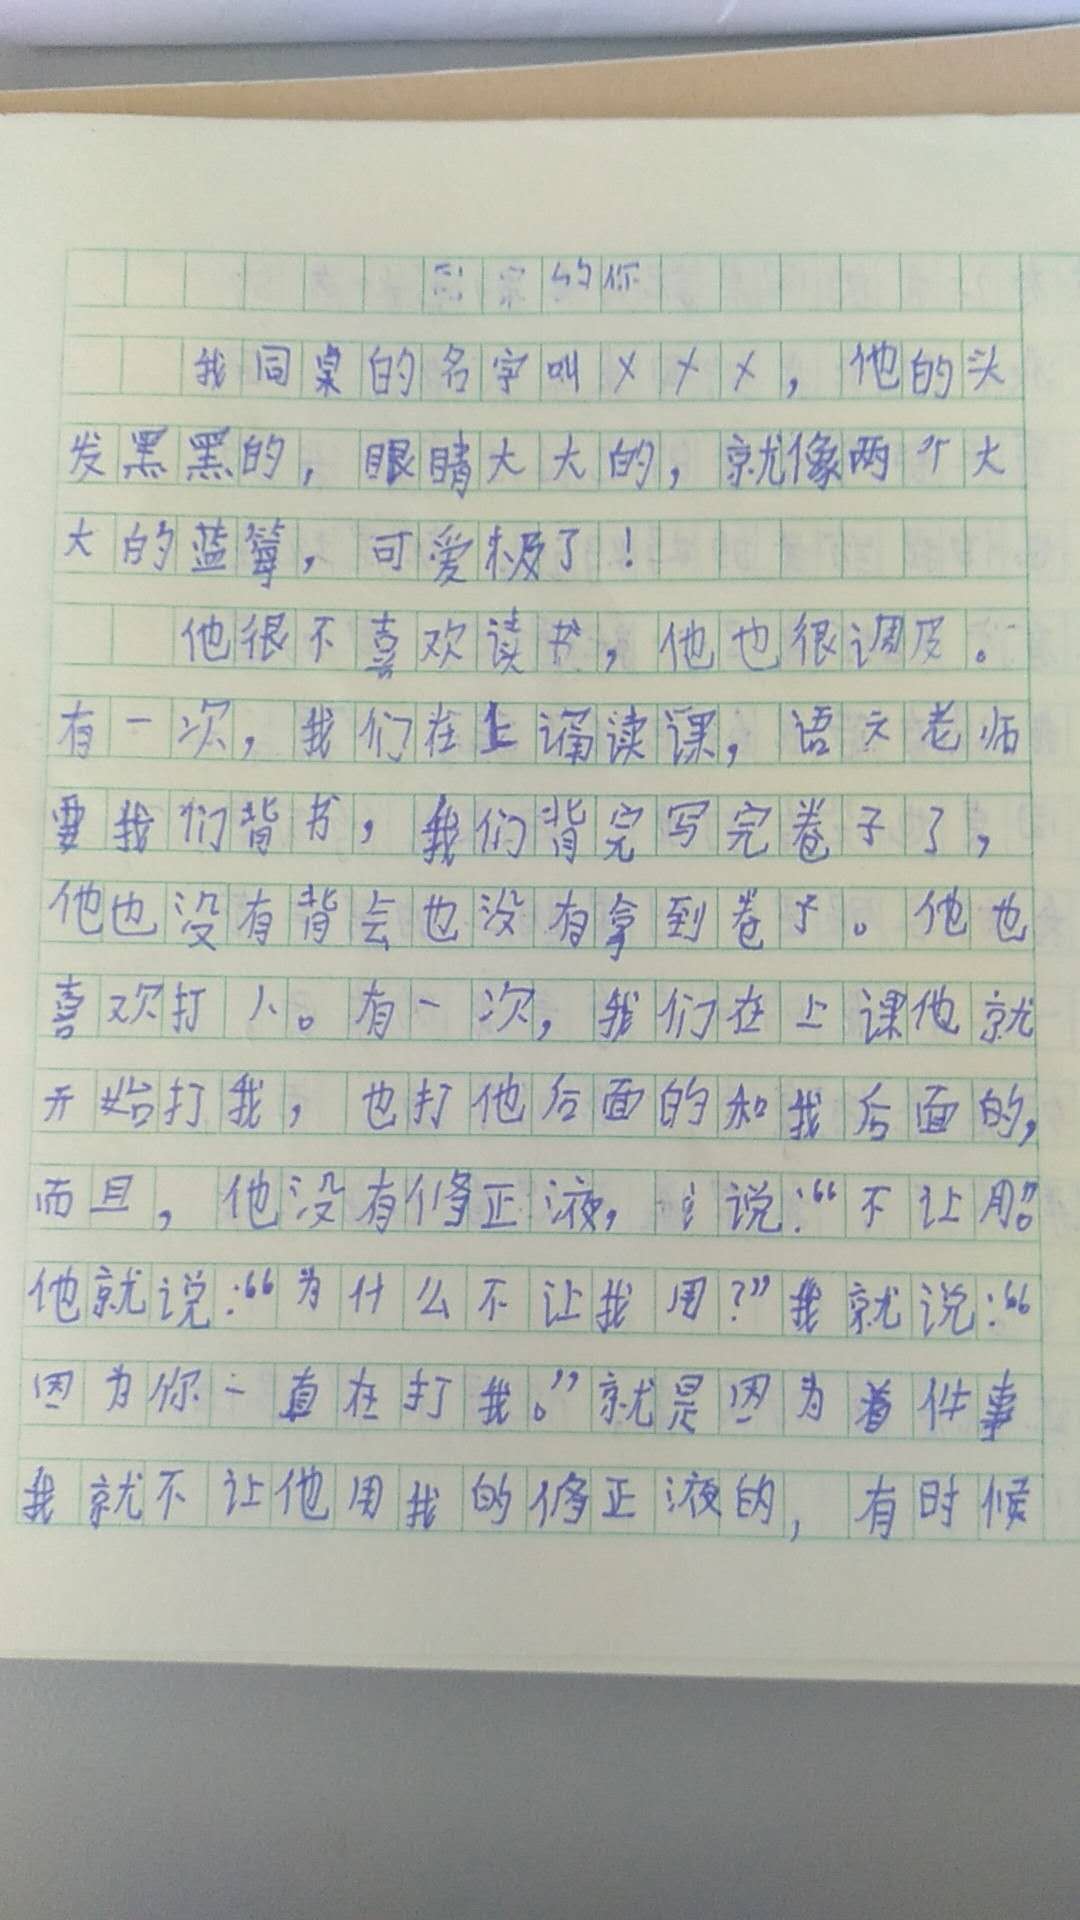 同桌的你
我同桌的名字叫×××，他的头
发黑黑的，眼睛大大的，就像两个大
大的蓝莓，可爱极了！
他很不喜欢读书，他也很调皮。
有一次，我们在上诵读课，语文老师
要我们背书，我们背完写完卷子了，
他也没有背会也没有拿到卷子。他也
喜欢打人。有一次，我们在上课他就
开始打我，也打他后面的和我后面的，
而且，他没有修正液，说：“不让用。”
他就说：“为什么不让我用？”我就说：“
因为你一直在打我。”就是因为着件事
我就不让他用我的修正液的，有时候